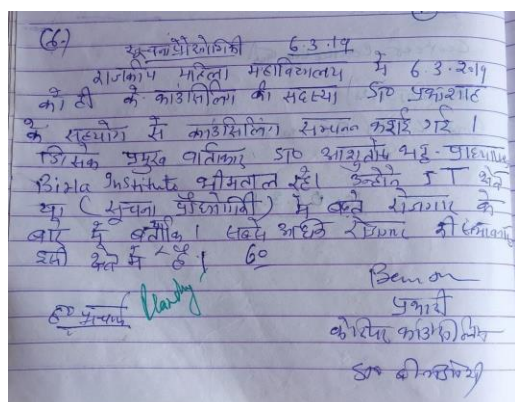 (6.)
सूचना प्रौद्योगिकी 6.3.19
राजकीय महिला महाविद्यालय में 6.3.2019
को ही के काउंसिलिंग की सदस्या डा०
के सहयोग से काउंसिलिंग सम्पन्न कराई गई।
जिसके प्रमुख वार्ताकार डा० आशुतोष भट्ट - प्राध्यापक
Birla Institute भीमताल रहे। उन्होंने IT क्षेत्र
या (सूचना प्रौद्योगिकी) में बढ़ते रोजगार के
बारे में बताया। सबसे अधिक रोजगार की
इसी क्षेत्र में है। 60
प्रभारी
कैरियर काउंसिलिंग
ह० प्राचार्य
डा०